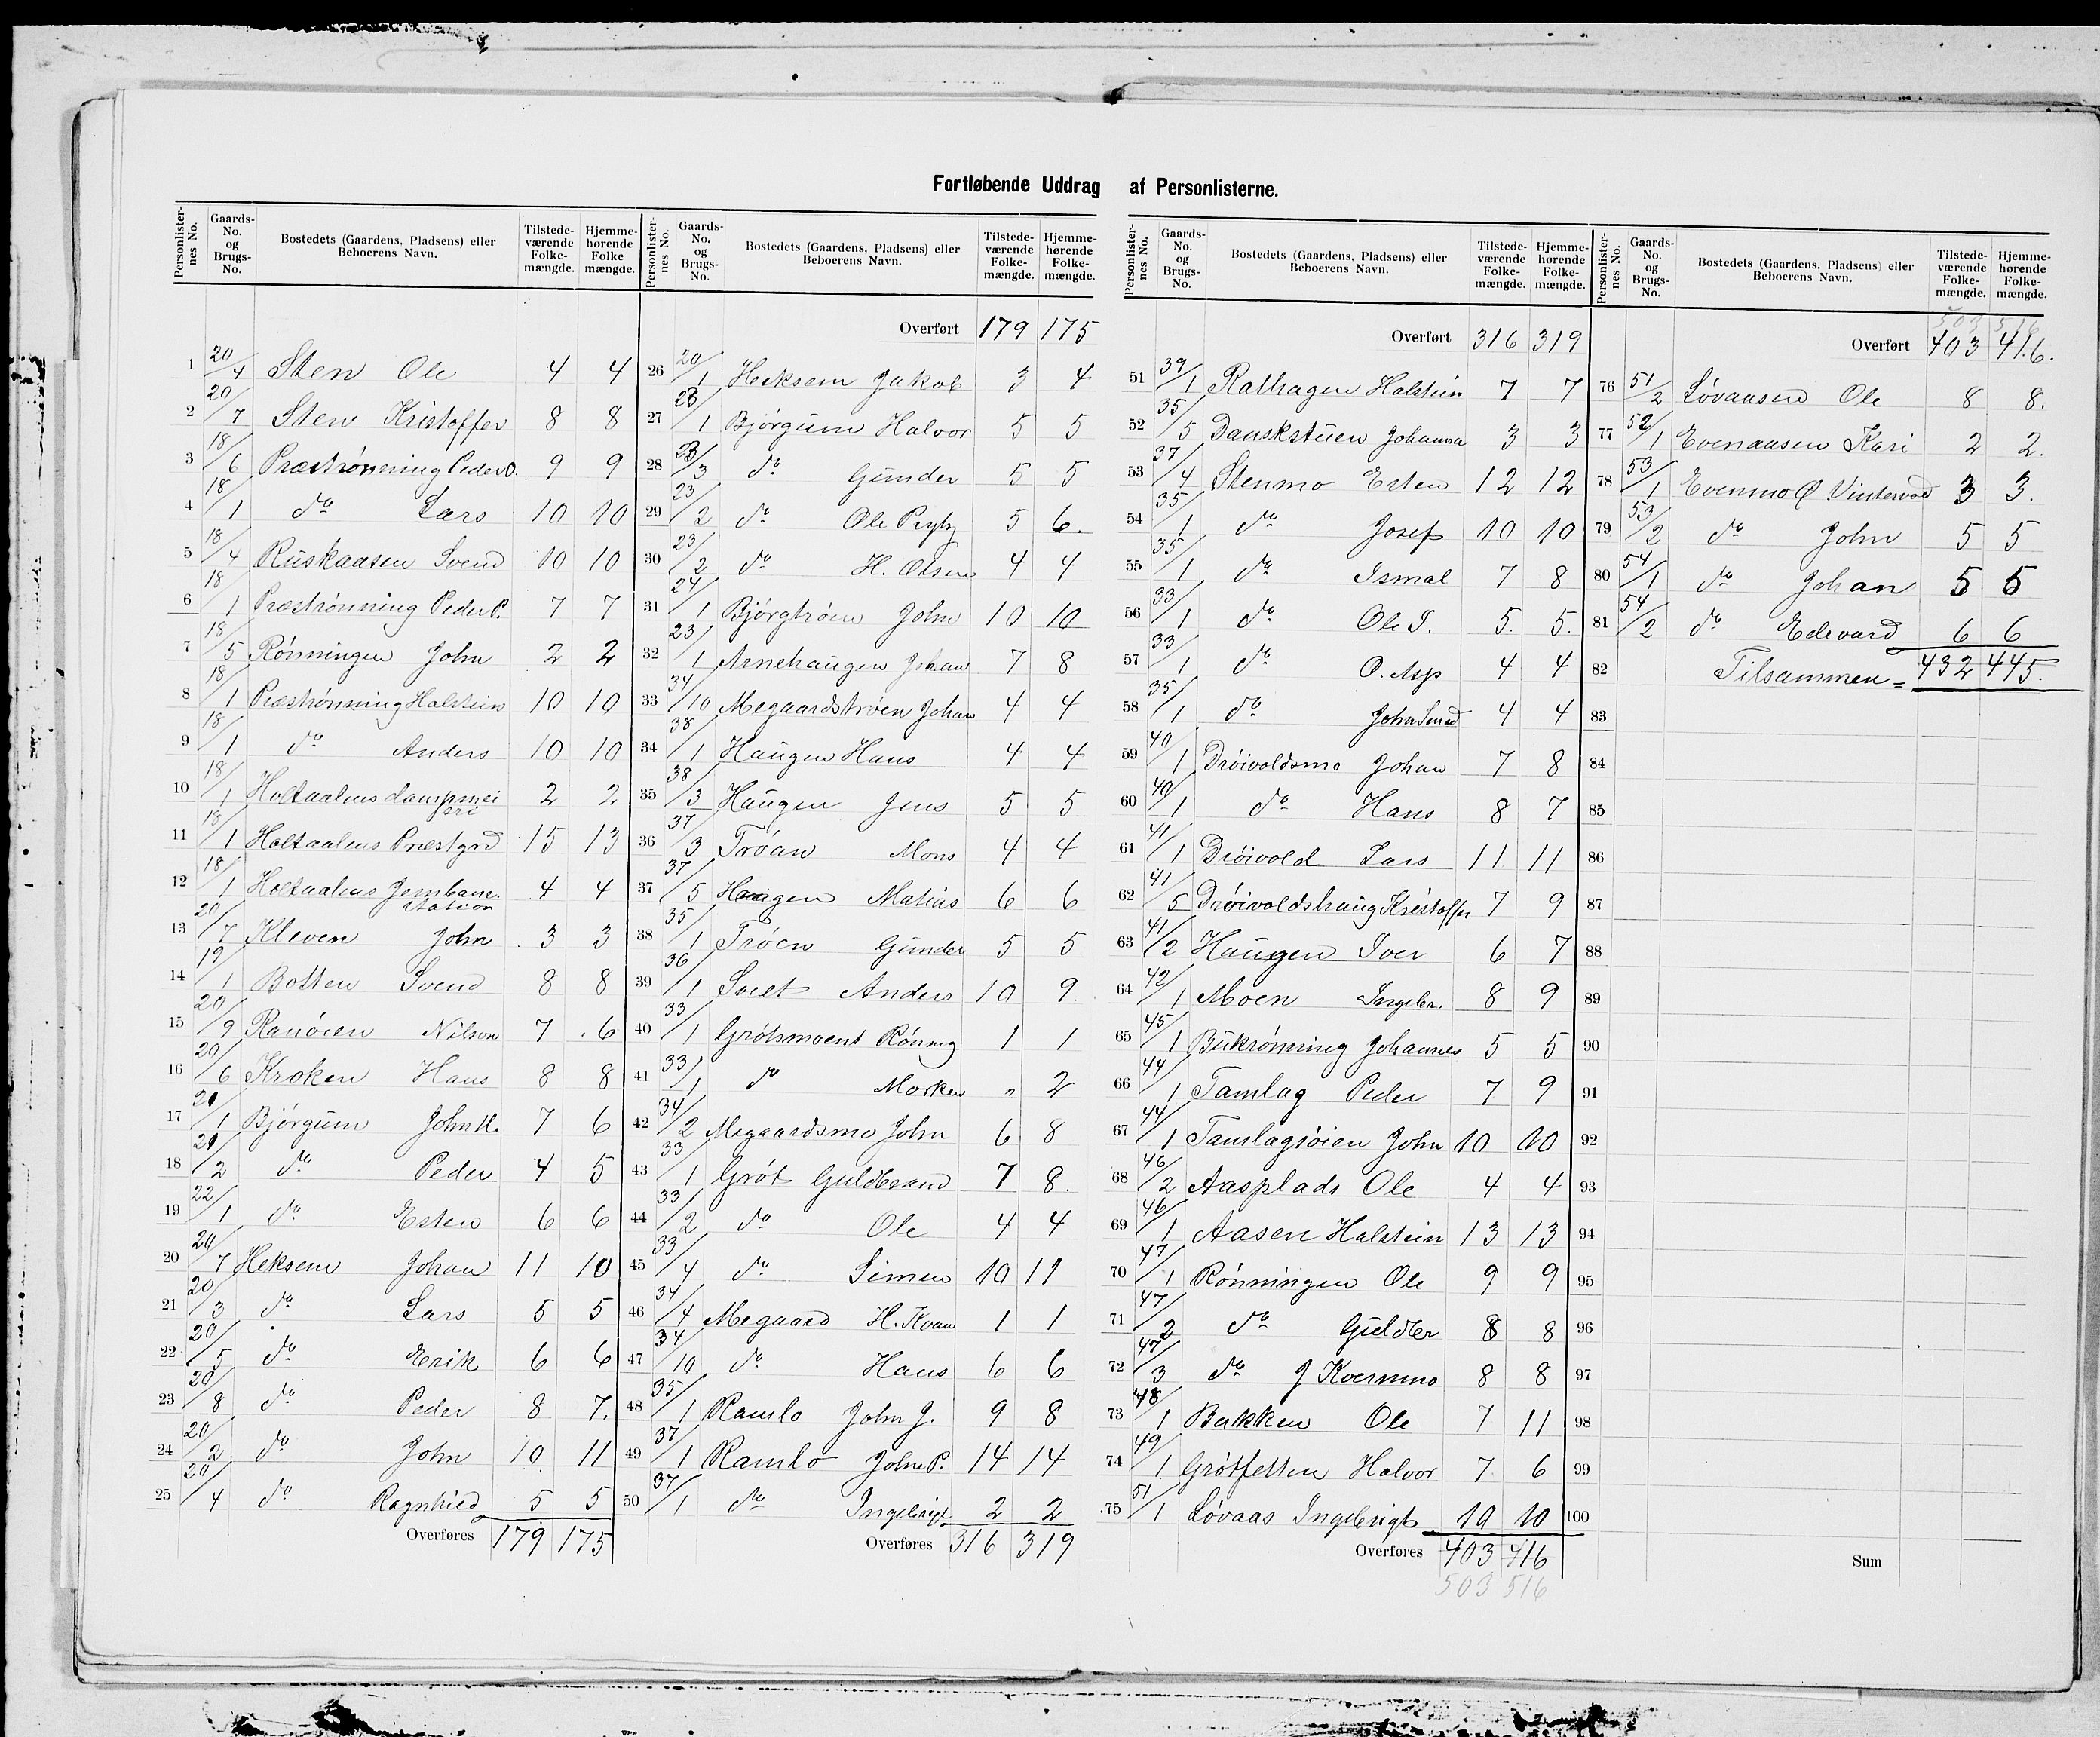 Fortløbende Uddrag af Personlisterne.
Personlisternes No. Gaards-No. og Brugs-No. Bostedets (Gaardens, Pladsens) eller Beboerens Navn. Tilstedeværende Folkemængde. Hjemmehørende Folkemængde.
1 20/4 Sten Ole 4 4
2 20/7 Sten Kristoffer 8 8
3 18/6 Præstrønning Peder O. 9 9
4 18/1 do Lars 10 10
5 18/4 Ruskaasen Svend 10 10
6 18/1 Præstrønning Peder P. 7 7
7 18/5 Rønningen John 2 2
8 18/1 Præstrønning Halstein 10 10
9 18/1 do Anders 10 10
10 18/1 Holtaalens dampmeieri 2 2
11 18/1 Holtaalens Præstgrd 15 13
12 18/1 Holtaalens Jernbane station 4 4
13 20/7 Kleven John 3 3
14 19/1 Botten Svend 8 8
15 20/9 Ranøien Nilsen 7 6
16 20/6 Kroken Hans 8 8
17 21/1 Bjørgum John H. 7 6
18 21/2 do Peder 4 5
19 22/1 do Esten 6 6
20 20/7 Heksem Johan 11 10
21 20/3 do Lars 5 5
22 20/5 do Erik 6 6
23 20/8 do Peder 8 7.
24 20/2 do John 10 11
25 20/4 do Ragnhild 5 5
Overføres 179 175
Personlisternes No. Gaards-No. og Brugs-No. Bostedets (Gaardens, Pladsens) eller Beboerens Navn. Tilstedeværende Folkemængde. Hjemmehørende Folkemængde.
Overført 179 175
26 20/1 Heksem Jakob 3 4
27 23/1 Bjørgum Halvor 5 5
28 23/3 do Gunder 5 5
29 23/2 do Ole 5 6.
30 23/2 do H. Olsen 4 4
31 24/1 Bjørgtrøen John 10 10
32 23/1 Arnehaugen Johan 7 8
33 34/10 Megaardstrøen Johan 4 4
34 38/1 Haugen Hans 4 4
35 38/3 Haugen Jens 5 5
36 37/3 Trøan Mons 4 4
37 37/5 Haugen Matias 6 6
38 35/1 Trøen Gunder 5 5
39 36/1 Svelt Anders 10 9
40 33/1 Grøtsmoent Rønning 1 1
41 33/1 do Morken " 2
42 34/2 Megaardsmo John 6 8
43 33/1 Grøt Guldbrand 7 8.
44 33/2 do Ole 4 4
45 33/4 do Simen 10 11
46 34/4 Megaard H. Kvam 1 1
47 34/10 do Hans 6 6
48 35/1 Ramlo John J. 9 8
49 37/1 Ramlo John P. 14 14
50 37/1 do Ingebrigt 2 2
Overføres 316 319
Personlisternes No. Gaards-No. og Brugs-No. Bostedets (Gaardens, Pladsens) eller Beboerens Navn. Tilstedeværende Folkemængde. Hjemmehørende Folkemængde.
Overført 316 319
51 39/1 Ralhagen Halstein 7 7
52 35/5 Danskstuen Johanna 3 3
53 37/4 Stenmo Esten 12 12
54 35/1 do Josef 10 10
55 35/1 do Ismal 7 8
56 33/1 do Ole I. 5. 5.
57 33/1 do O. Asp 4 4
58 35/1 do John Smed 4 4
59 40/1 Drøivoldsmo Johan 7 8
60 40/1 do Hans 8 7
61 41/1 Drøivold Lars 11 11
62 41/5 Drøivoldshaug Kristoffer 7 9
63 41/2 Haugen Iver 6 7
64 42/1 Moen Ingebr. 8 9
65 45/1 Bukrønning Johannes 5 5
66 44/1 Tamlag Peder 7 9
67 44/1 Tamlagsøien John 10 10
68 46/2 Aasplads Ole 4 4
69 46/1 Aasen Halstein 13 13
70 47/1 Rønningen Ole 9 9
71 47/2 do Guldbr 8 8
72 47/3 do J Kvernmo 8 8
73 48/1 Bakken Ole 7 11
74 49/1 Grøtfetten Halvor 7 6
75 51/1 Løvaas Ingebrigt 10 10
Overføres 403 416
503 516
Personlisternes No. Gaards-No. og Brugs-No. Bostedets (Gaardens, Pladsens) eller Beboerens Navn. Tilstedeværende Folkemængde. Hjemmehørende Folkemængde.
503 516
Overført 403 416.
76 51/2 Løvaasen Ole 8 8.
77 52/1 Evenaasen Kari 2 2.
78 53/1 Evenmo O Vintervold 3 3.
79 53/2 do John 5 5
80 54/1 do Johan 5 5
81 54/2 do Edevard 6 6
82 Tilsammen = 432 445.
83
84
85
86
87
88
89
90
91
92
93
94
95
96
97
98
99
100
Sum